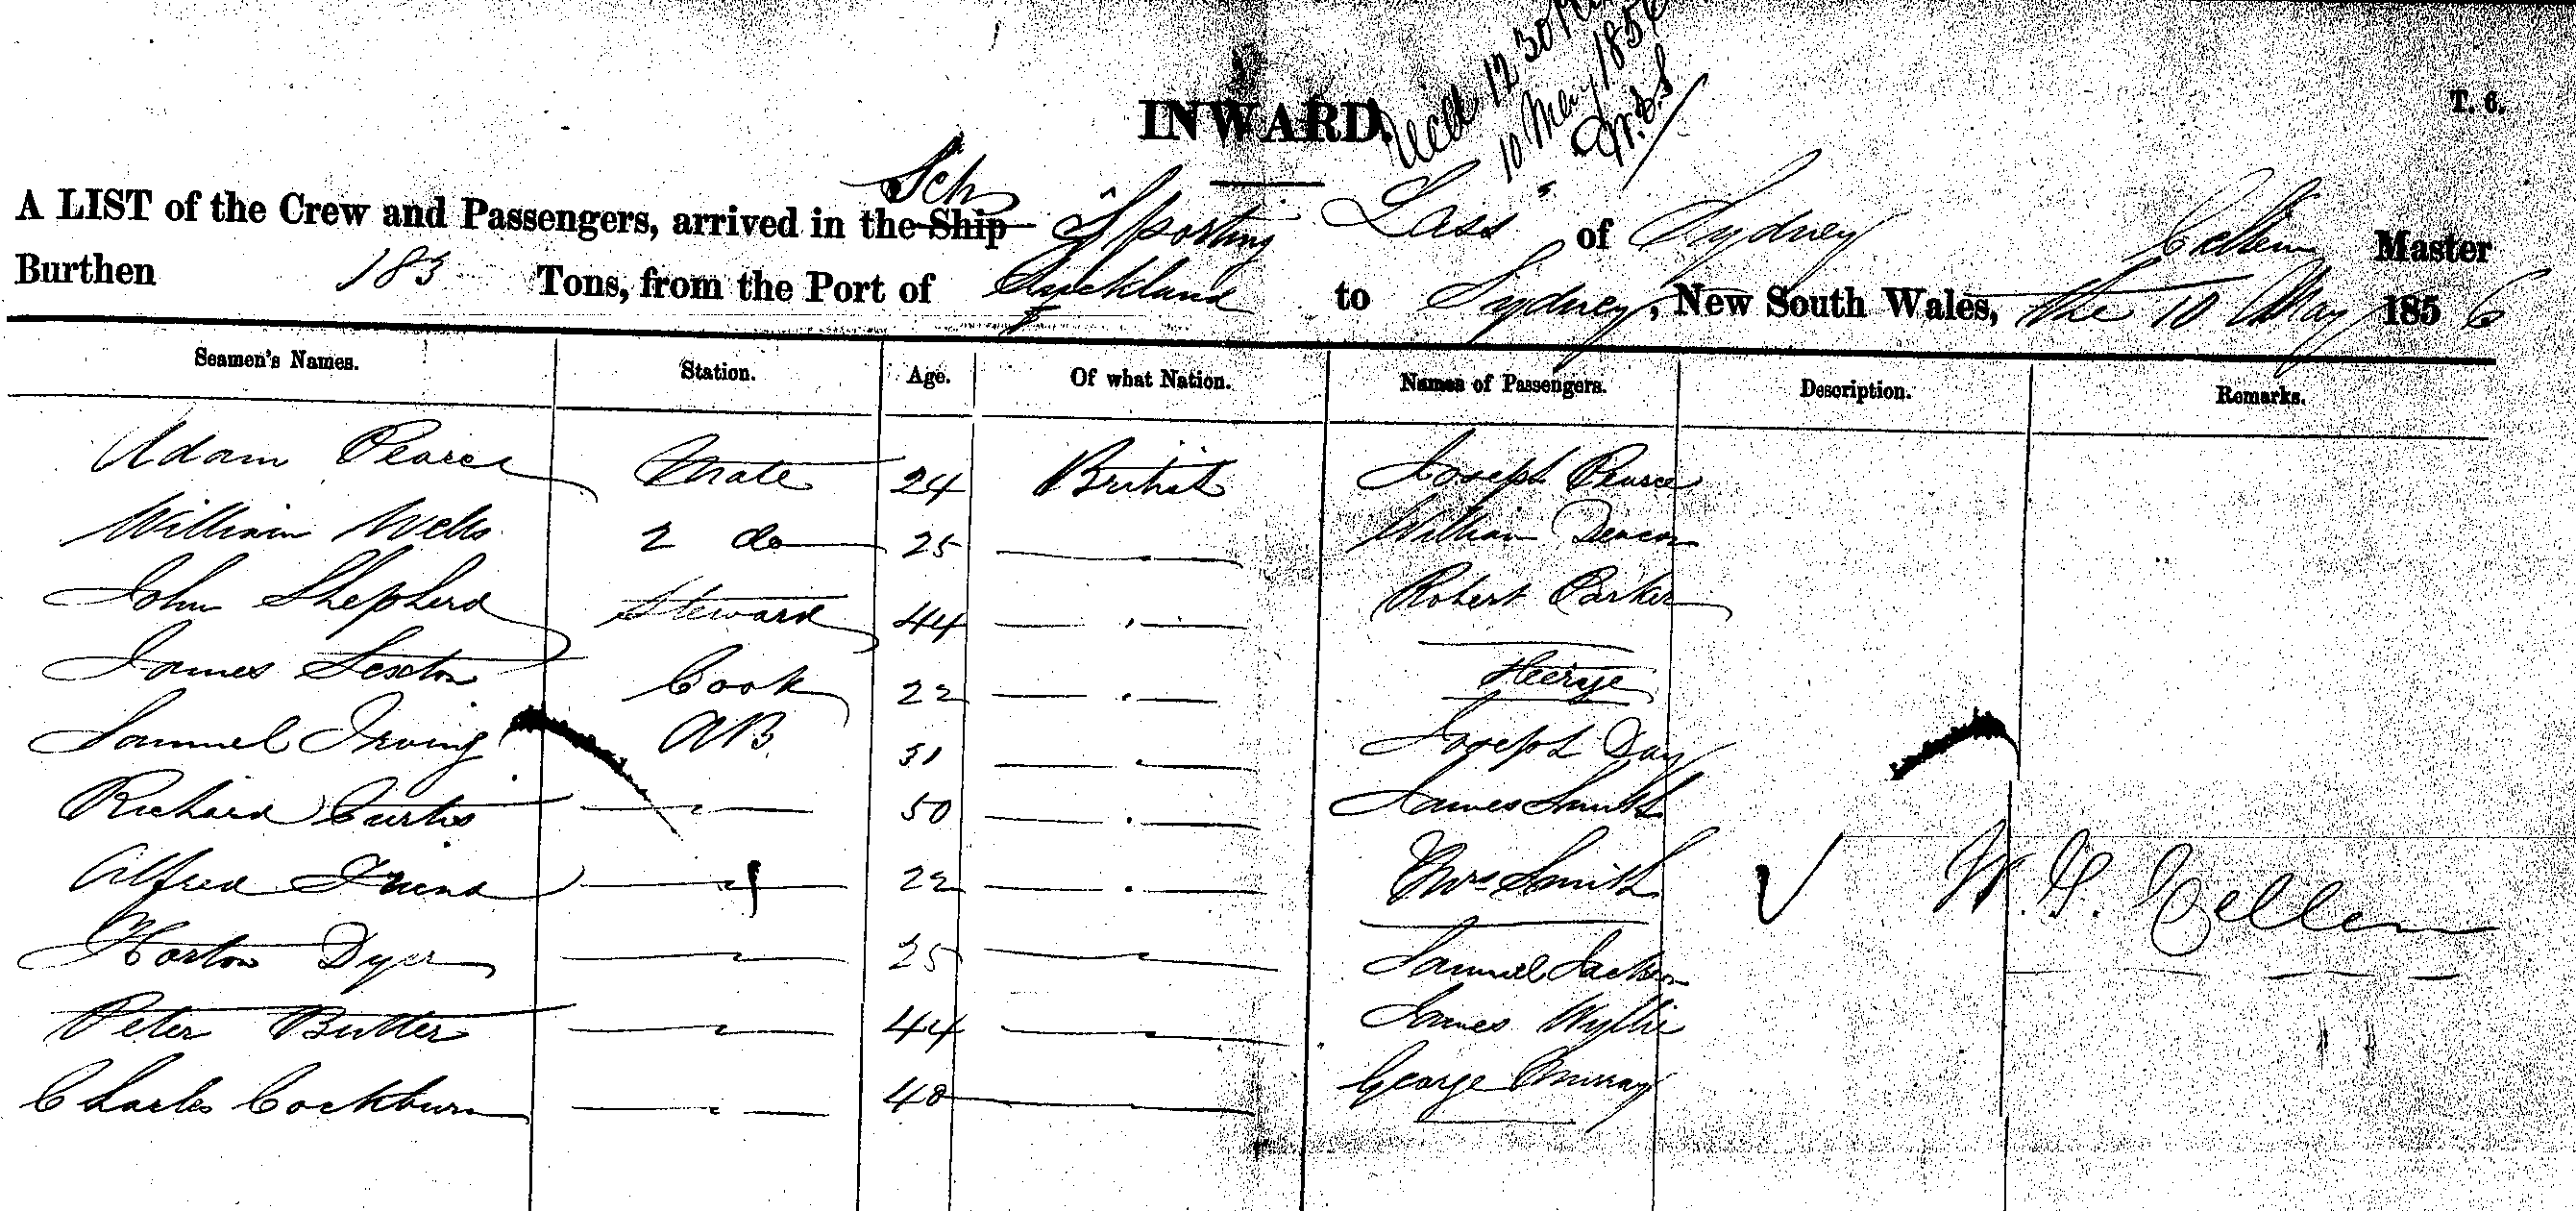 12 30 PM
10 May 1856
INWARD.
T. 6.
Sch
A LIST of the Crew and Passengers, arrived in the Ship "Sporting Lass" of Sydney Cellem Master
Burthen 183 Tons, from the Port of Auckland to Sydney, New South Wales, the 10 May 1856
Seamen's Names. Station. Age. Of what Nation. Names of Passengers. Description. Remarks.
Adam Pearce Mate 24 British Joseph Pearce
William Wells 2 do 25 William Deacon
John Shepherd Steward 44 Robert Parker
James Sexton Cook 22 Steerage
Samuel Irving AB 31 Joseph Day
Richard Curtis " 50 " James Smith
Alfred Friend " 22 " Mrs Smith W. G. Cellem
Horton Dyer " 25 " Samuel Jackson
Peter Butter " 44 " James Wyllie
Charles Cockburn " 40 " George Murray